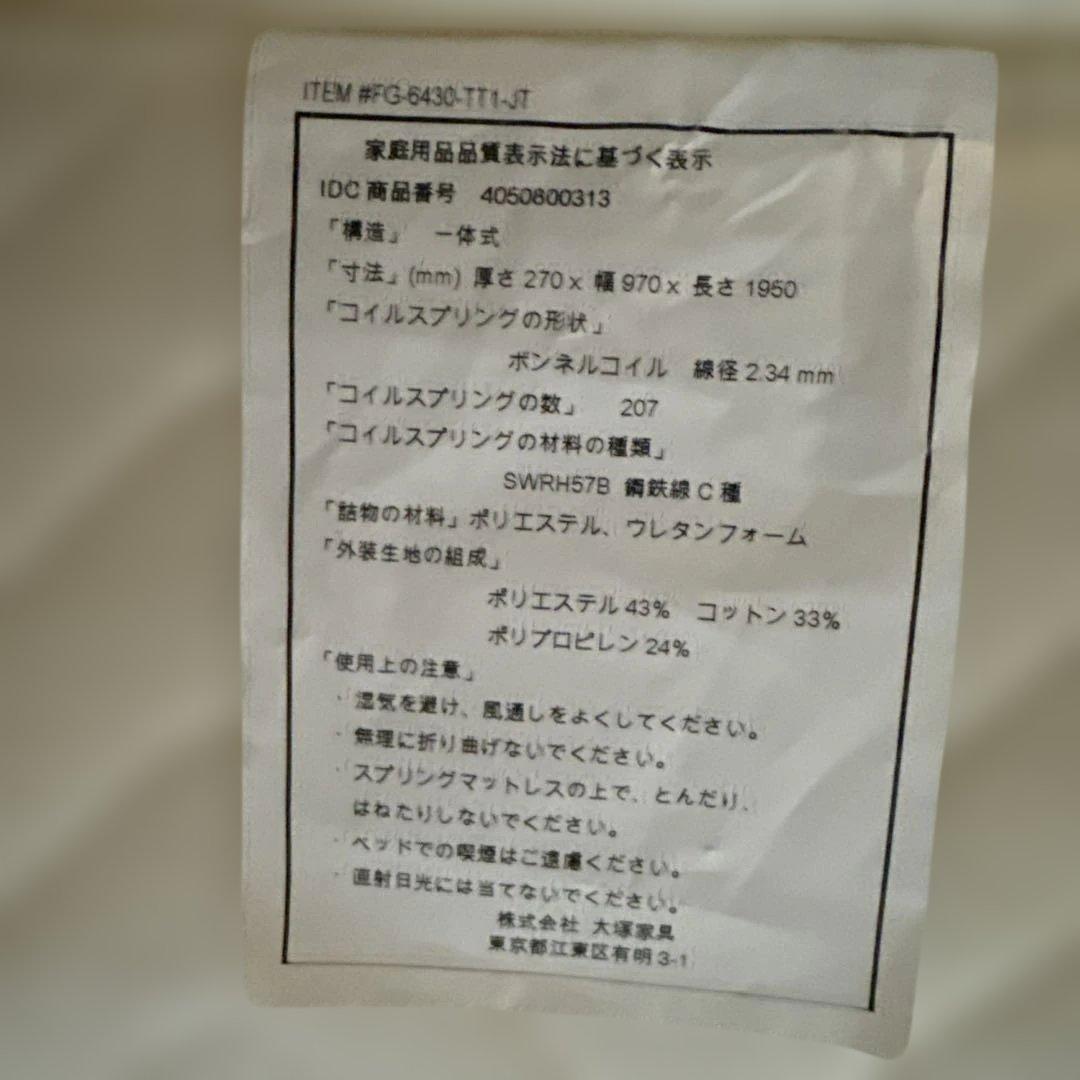 ITEM #FG-6430-TT1-JT
家庭用品品質表示法に基づく表示
IDC 商品番号 4050800313
「構造」 一体式
「寸法」(mm) 厚さ 270 x 幅 970 x 長さ 1950
「コイルスプリングの形状」
ボンネルコイル 線径 2.34 mm
「コイルスプリングの数」 207
「コイルスプリングの材料の種類」
SWRH57B 鋼鉄線 C 種
「詰物の材料」ポリエステル、ウレタンフォーム
「外装生地の組成」
ポリエステル 43% コットン 33%
ポリプロピレン 24%
「使用上の注意」
・湿気を避け、風通しをよくしてください。
・無理に折り曲げないでください。
・スプリングマットレスの上で、とんだり、
はねたりしないでください。
・ベッドでの喫煙はご遠慮ください。
・直射日光には当てないでください。
株式会社 大塚家具
東京都江東区有明 3-1